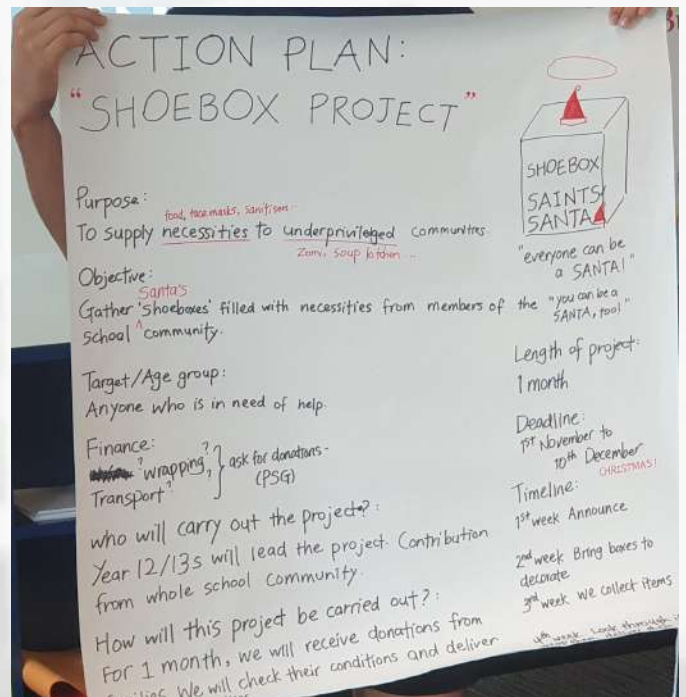 ACTION PLAN:
“SHOEBOX PROJECT”
Purpose:
food, face masks, sanitisers...
To supply necessities to underprivileged communities.
Zomi, soup kitchen...
Objective:
Santa's
Gather 'shoeboxes' filled with necessities from members of the
school ^ community.
Target/Age group:
Anyone who is in need of help.
Finance:
? wrapping ?
Transport ? ?
} ask for donations -
(PSG)
who will carry out the project?:
Year 12/13s will lead the project. Contribution
from whole school community.
How will this project be carried out?:
For 1 month, we will receive donations from
We will check their conditions and deliver
SHOEBOX
SAINTS
SANTA
"everyone can be
a SANTA!"
"you can be a
SANTA, too!"
Length of project:
1 month
Deadline:
1st November to
10th December
CHRISTMAS!
Timeline:
1st week Announce
2nd week Bring boxes to
decorate
3rd week We collect items
4th week look through